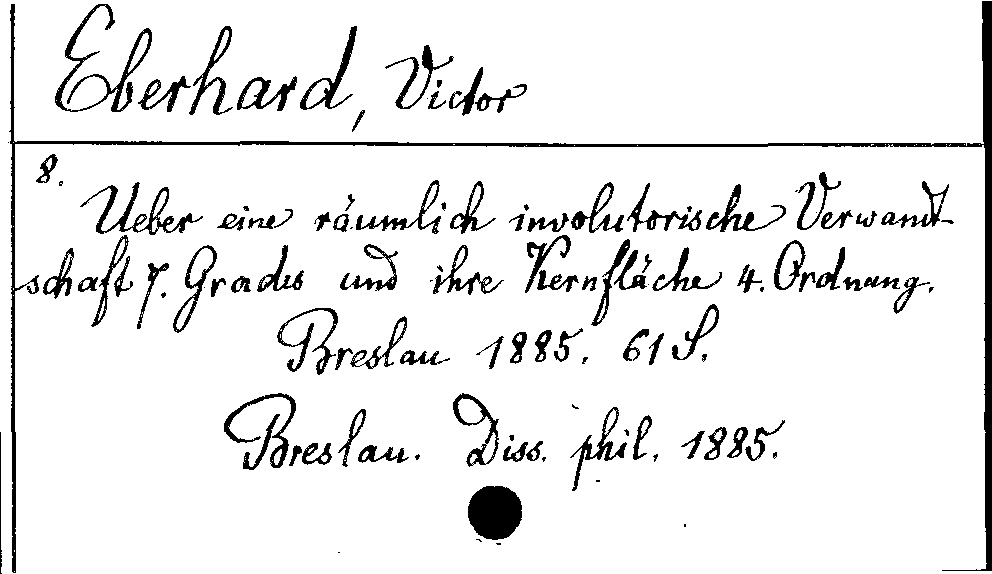 Eberhard, Victor
8.
Ueber eine räumlich involutorische Verwandt-
schaft 7. Grades und ihre Kernfläche 4. Ordnung.
Breslau 1885. 61 S.
Breslau. Diss. phil. 1885.